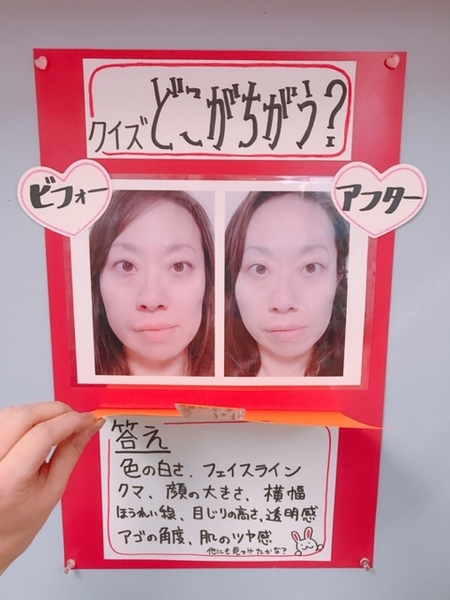 クイズ どこがちがう?
ビフォー
アフター
答え
色の白さ、フェイスライン
クマ、顔の大きさ、横幅
ほうれい線、目じりの高さ、透明感
アゴの角度、肌のツヤ感
他にも見つけたかな?